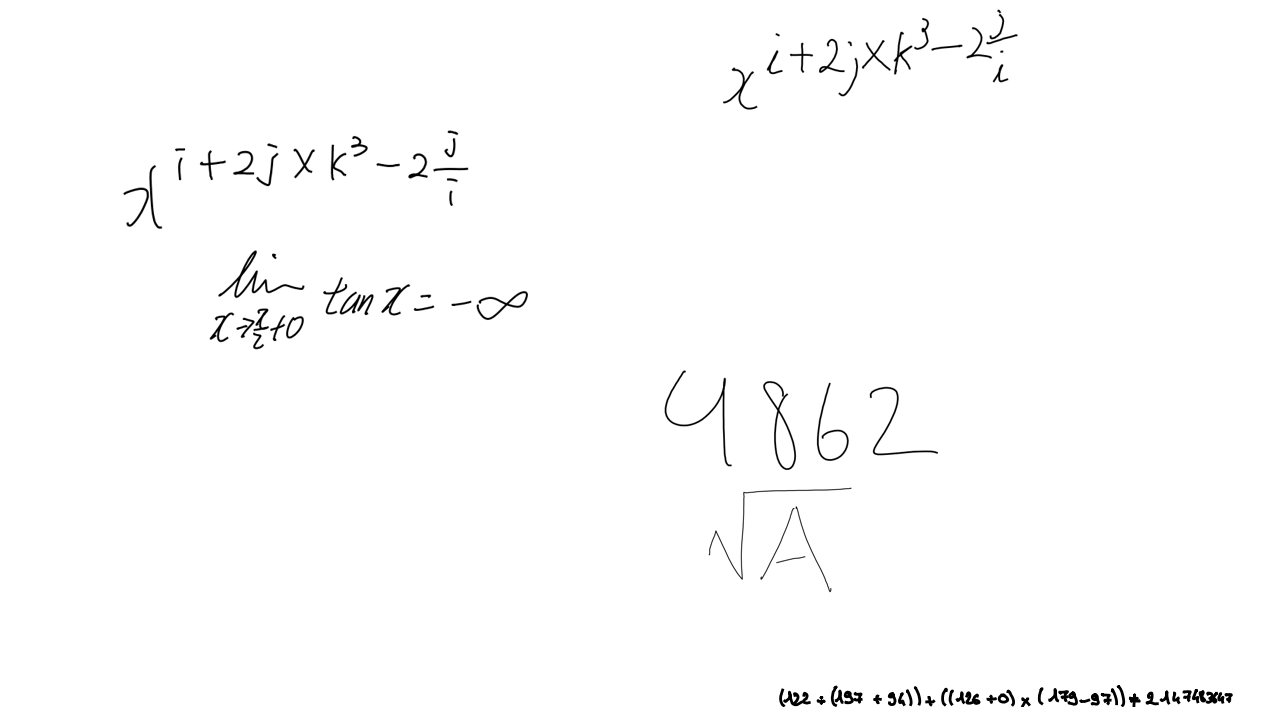 x^{i+2j×k^3-2\frac{j}{i}}
x^{i+2j×k^3-2\frac{j}{i}}
\lim_{x→\frac{π}{2}+0} tan x = -∞
4862
√A
(122 ÷ (197 + 94)) + ((126 + 0) × (179 - 97)) ≠ 2147483647